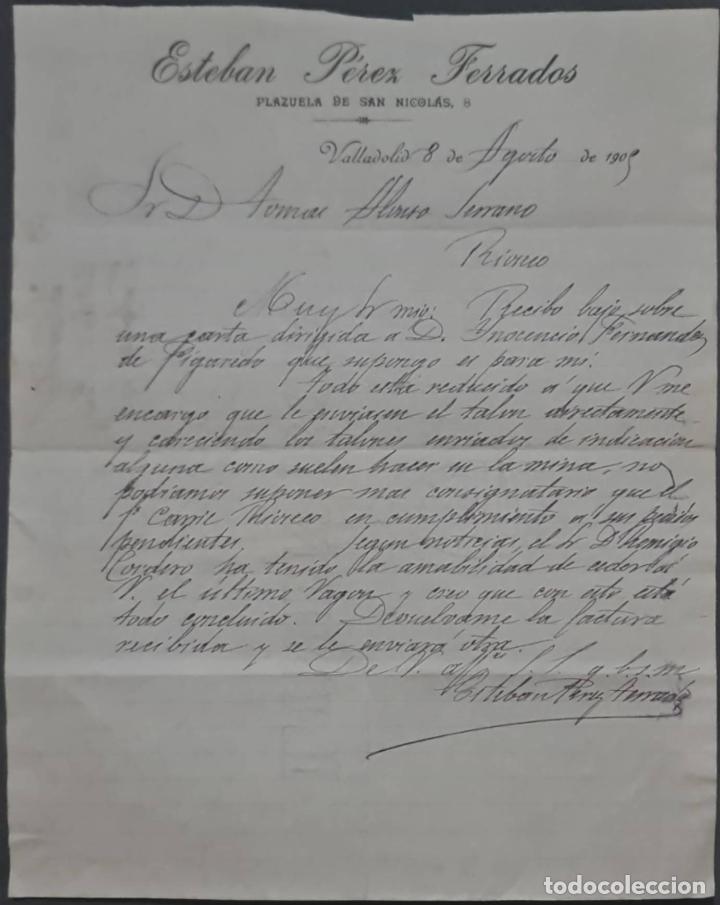 Esteban Pérez Ferrados
PLAZUELA DE SAN NICOLÁS, 8
Valladolid 8 de Agosto de 190
Sr D Tomas Alonso Serrano
Rioseco
Muy Sr mio: Recibo bajo sobre
una carta dirigida a D. Ynocencio Fernandez
de Figaredo que supongo es para mi.
Todo está reducido a que V me
encargo que le enviasen el talon directamente
y careciendo los talones enviados de indicacion
alguna como suelen hacer en la mina, no
podiamos suponer mas consignatario que el
f Carril Rioseco en cumplimiento a sus pedidos
pendientes. Segun noticias, el Sr D Remigio
Cordero ha tenido la amabilidad de ceder á
V. el ultimo Vagon y creo que con esto está
todo concluido. Devuelvame la factura
recibida y se le enviará otra.
De V. aff S. S. q. b. s. m
Esteban Perez Ferrados
todocoleccion
todocoleccion.net